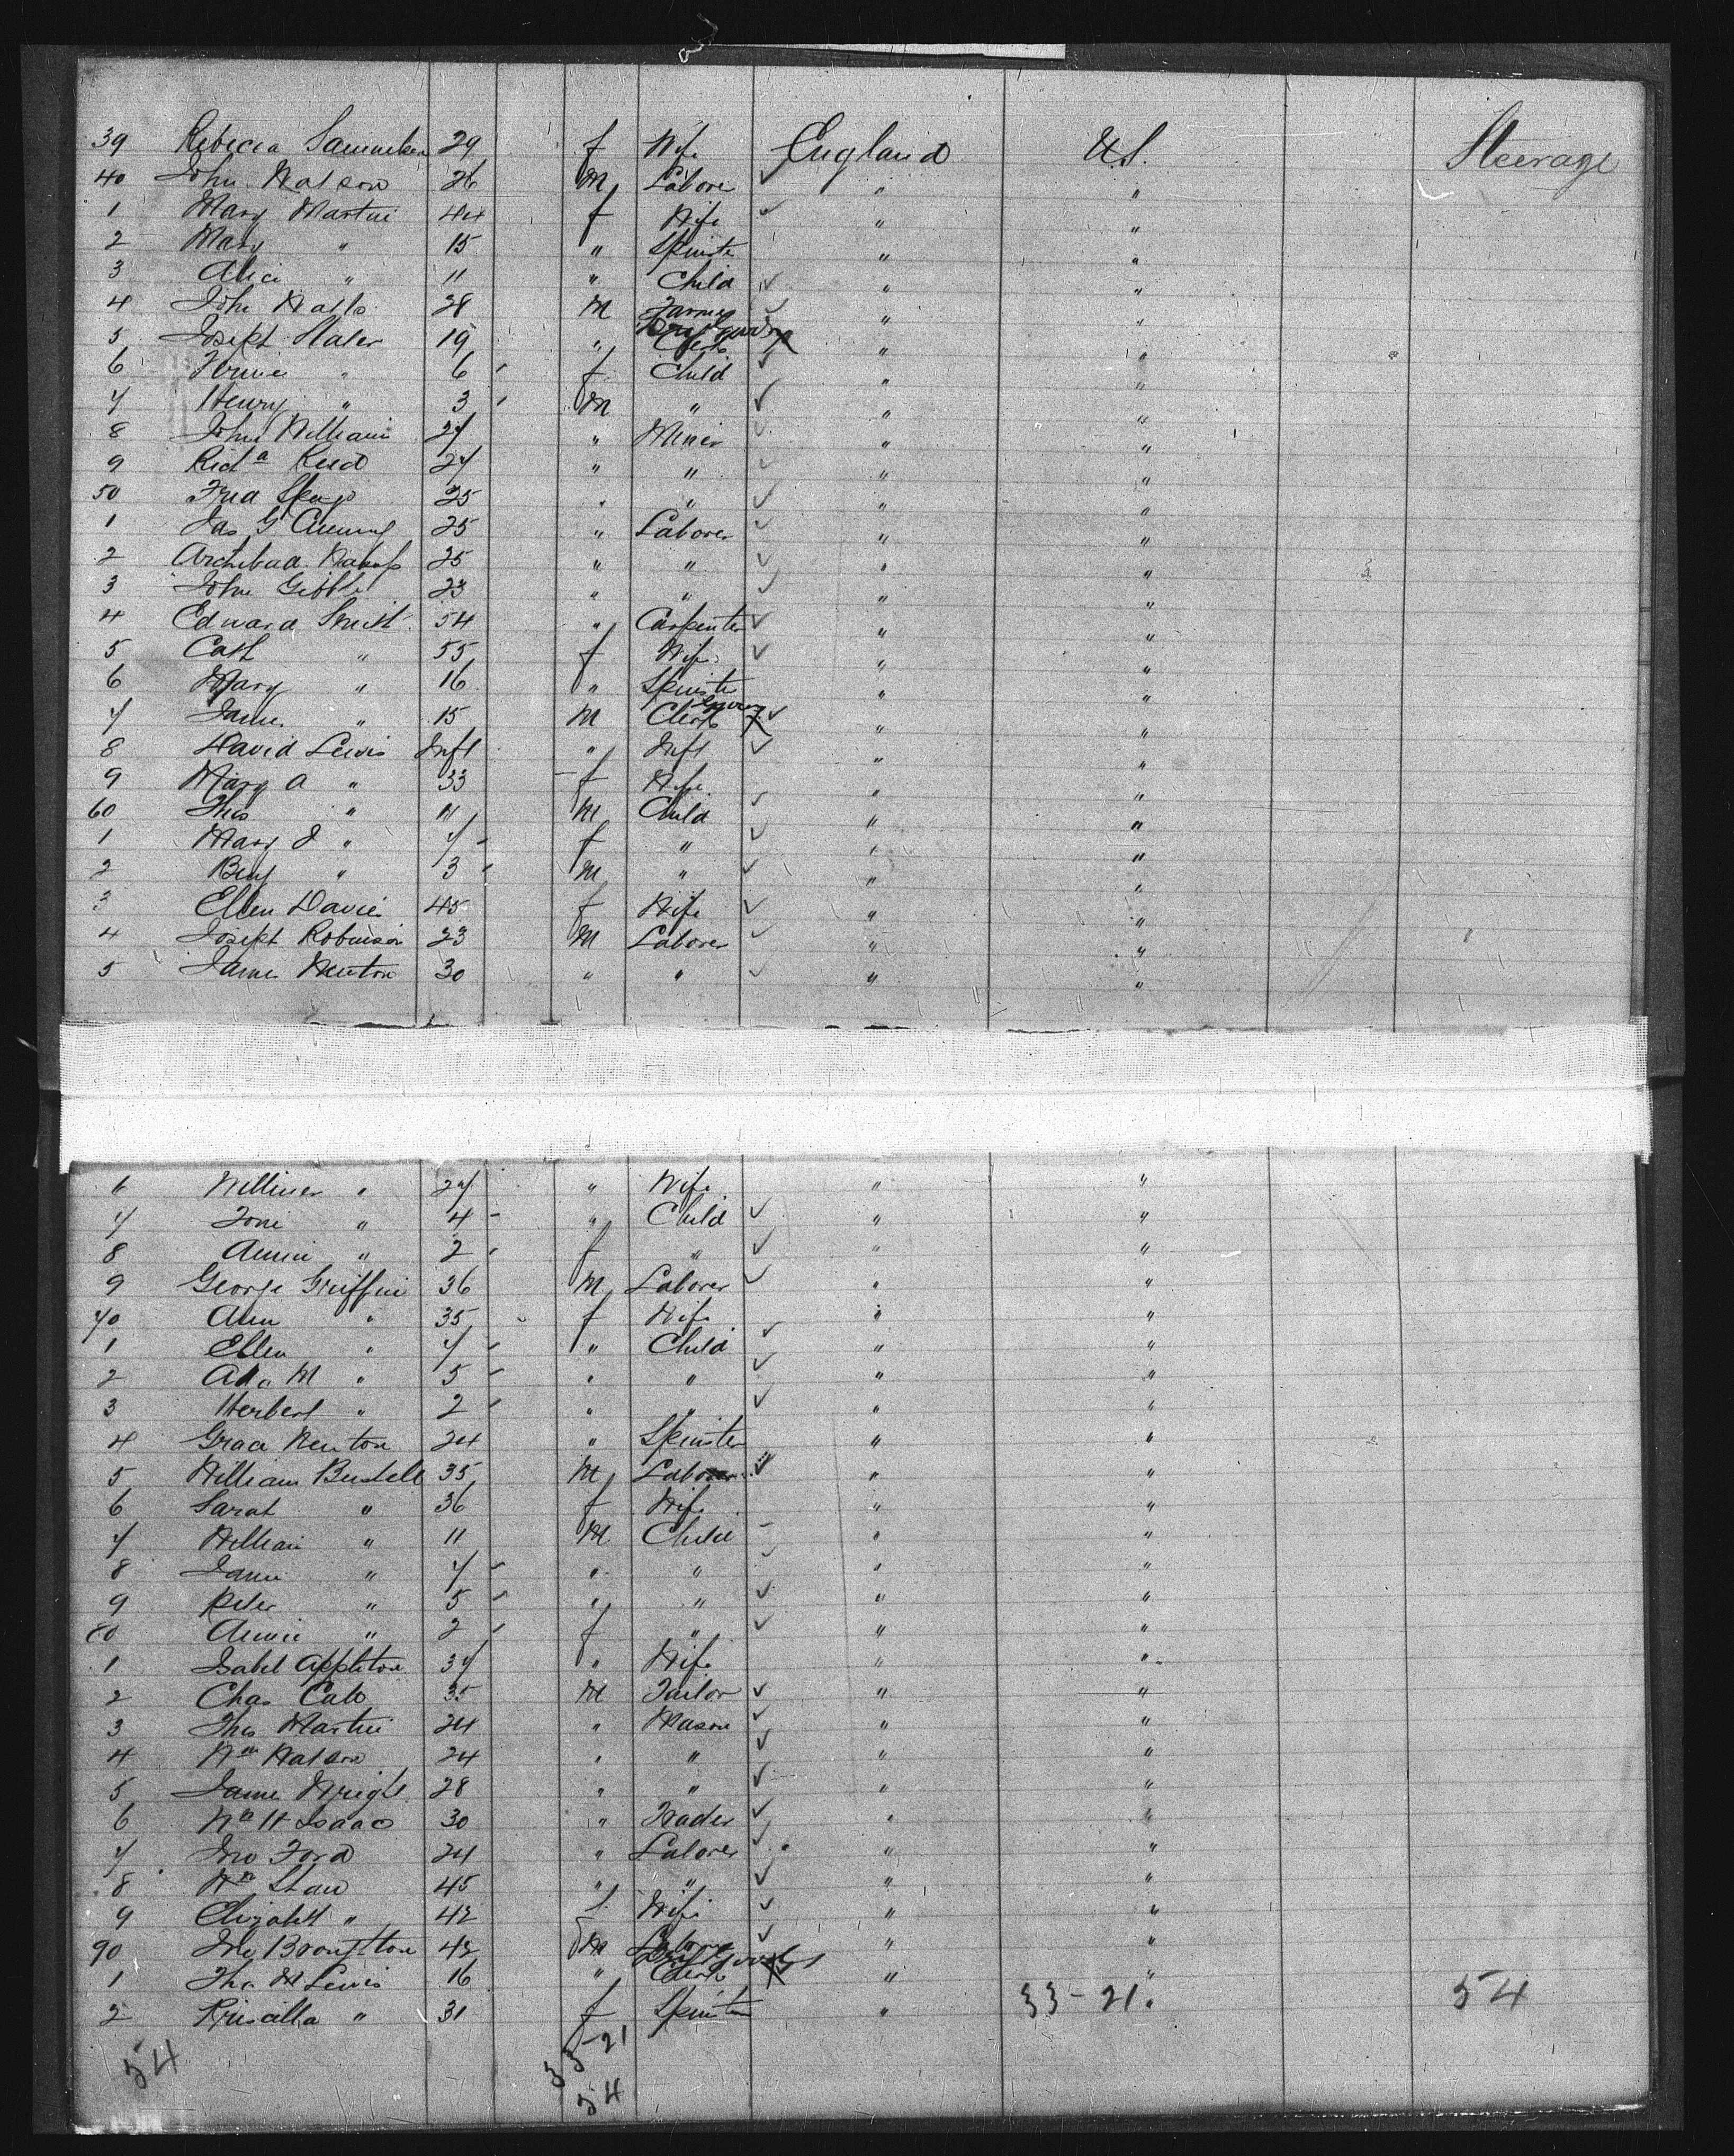 39 Rebecca 29 f Wife England U.S. Steerage
40 John Watson 26 M Labore " "
1 Mary Martin 44 f Wife " "
2 Mary " 15 " Spinste " "
3 Alice " 11 " Child " "
4 John Watts 28 M Farmer " "
5 Joseph Slater 19 " Dry Goods Clerk " "
6 " 6 f Child " "
7 Henry " 3 M " " "
8 John William 27 " Miner " "
9 Richd Reed 27 " " " "
50 Fred 25 " " " "
1 Jas G 25 " Laborer " "
2 Archibald 25 " " " "
3 John Gibbs 23 " " " "
4 Edward Smith 54 " Carpenter " "
5 Cath " 55 f Wife " "
6 Mary " 16 " Spinste " "
7 Jame " 15 M Clerk " "
8 David Lewis Inft " Inft " "
9 Mary A " 33 f Wife " "
60 Thos " 11 M Child " "
1 Mary J " 7 f " " "
2 Benj " 3 M " " "
3 Ellen Davies 45 f Wife " "
4 Joseph Robinson 23 M Laborer " "
5 Jame Newton 30 " " " "
6 " 27 " Wife " "
7 " 4 " Child " "
8 Annie " 2 f " " "
9 George Griffin 36 M Laborer " "
70 Ann " 35 f Wife " "
1 Ellen " 7 " Child " "
2 Ada M " 5 " " " "
3 Herbert " 2 " " " "
4 Grace Newton 24 " Spinster " "
5 William Bustell 35 M Laborer " "
6 Sarah " 36 f Wife " "
7 William " 11 M Child " "
8 Jame " 7 " " " "
9 Peter " 5 " " " "
80 Annie " 2 f " " "
1 Isabel Appleton 37 " Wife " "
2 Chas 35 M Tailor " "
3 Thos Martin 24 " Mason " "
4 Wm Watson 24 " " " "
5 Jame Wright 28 " " " "
6 Wm H Isaacs 30 " Trader " "
7 Jno Ford 24 " Laborer " "
8 Wm Shaw 45 " " " "
9 Elizabeth " 42 f Wife " "
90 Jno Broughton 42 M Laborer " "
1 Thos W Lewis 16 " Dry Goods Clerk " "
2 Priscilla " 31 f Spinster " 33-21 " 54
54 33-21
54